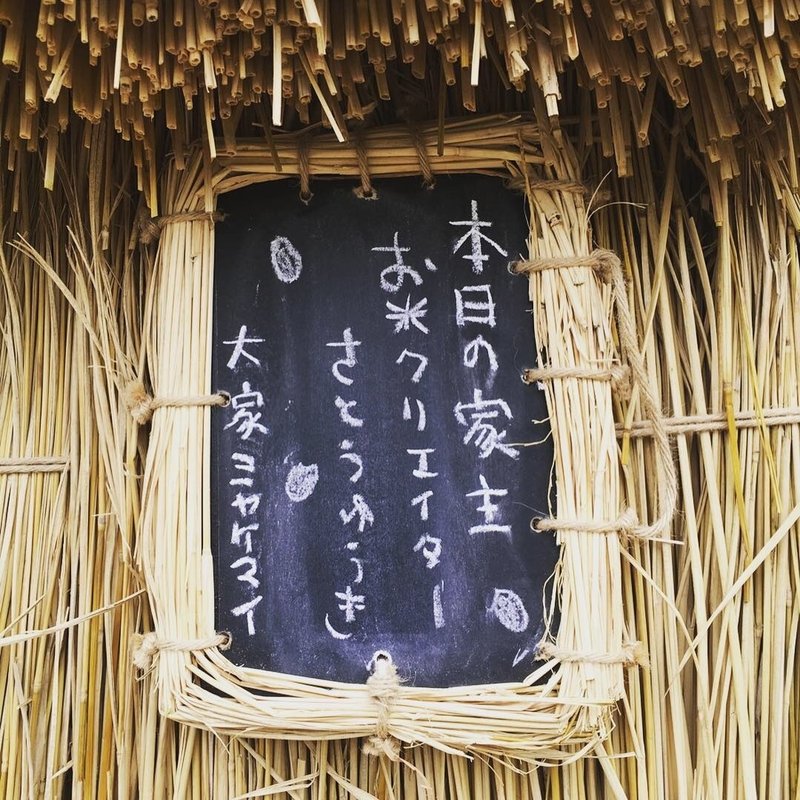 本日の家主
お米クリエイター
さとうゆうき
大家ミヤケマイ